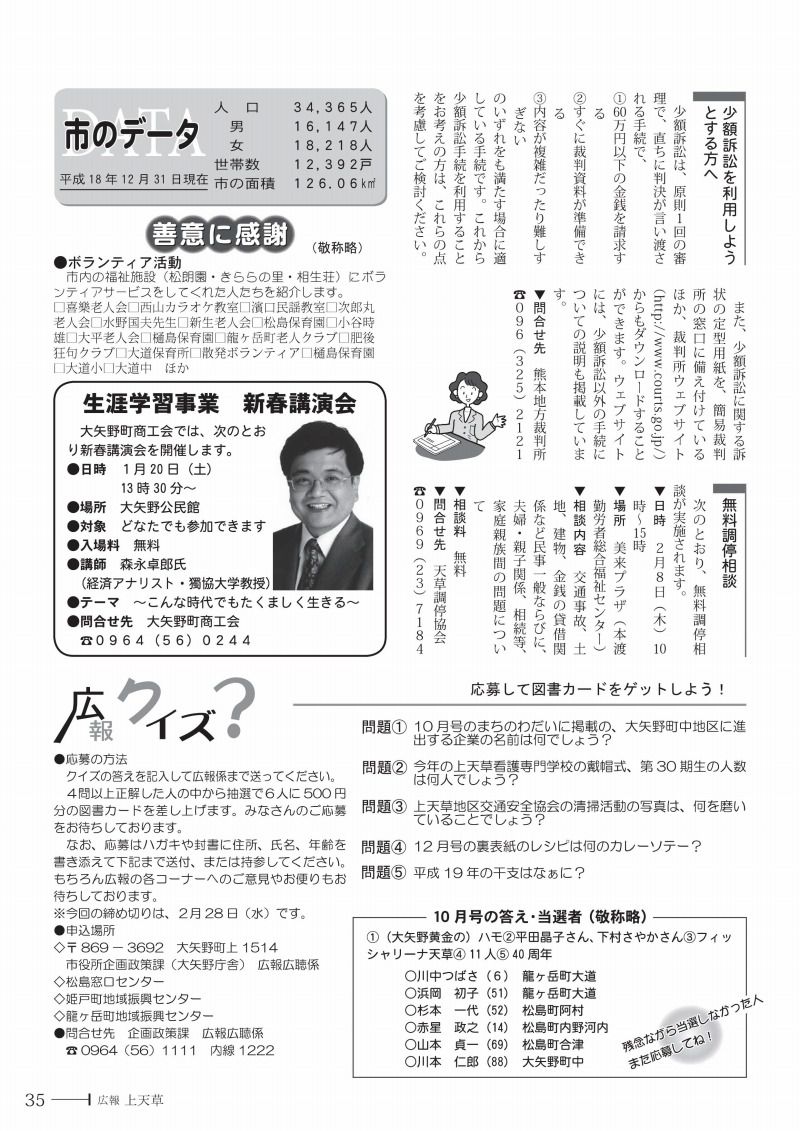 少額訴訟を利用しよう
とする方へ
少額訴訟は、原則1回の審
理で、直ちに判決が言い渡さ
れる手続で、
①60万円以下の金銭を請求す
る
②すぐに裁判資料が準備でき
る
③内容が複雑だったり難しす
ぎない
のいずれをも満たす場合に適
している手続です。これから
少額訴訟手続を利用すること
をお考えの方は、これらの点
を考慮してご検討ください。
また、少額訴訟に関する訴
状の定型用紙を、簡易裁判
所の窓口に備え付けている
ほか、裁判所ウェブサイト
(http://www.courts.go.jp/)
からもダウンロードすること
ができます。ウェブサイト
には、少額訴訟以外の手続に
ついての説明も掲載していま
す。
▼問合せ先 熊本地方裁判所
☎096(325)2121
無料調停相談
次のとおり、無料調停相
談が実施されます。
▼日時 2月8日(木)10
時～15時
▼場所 美来プラザ(本渡
勤労者総合福祉センター)
▼相談内容 交通事故、土
地、建物、金銭の貸借関
係など民事一般ならびに、
夫婦・親子関係、相続等、
家庭親族間の問題につい
て
▼相談料 無料
▼問合せ先 天草調停協会
☎0969(23)7184
DATA
市のデータ
平成18年12月31日現在
人口 34,365人
男 16,147人
女 18,218人
世帯数 12,392戸
市の面積 126.06㎢
善意に感謝
(敬称略)
●ボランティア活動
市内の福祉施設(松朗園・きららの里・相生荘)にボラ
ンティアサービスをしてくれた人たちを紹介します。
□喜樂老人会□西山カラオケ教室□濱口民謡教室□次郎丸
老人会□水野国夫先生□新生老人会□松島保育園□小谷時
雄□大平老人会□樋島保育園□龍ヶ岳町老人クラブ□肥後
狂句クラブ□大道保育所□散発ボランティア□樋島保育園
□大道小□大道中 ほか
生涯学習事業 新春講演会
大矢野町商工会では、次のとお
り新春講演会を開催します。
●日時 1月20日(土)
13時30分～
●場所 大矢野公民館
●対象 どなたでも参加できます
●入場料 無料
●講師 森永卓郎氏
(経済アナリスト・獨協大学教授)
●テーマ ～こんな時代でもたくましく生きる～
●問合せ先 大矢野町商工会
☎0964(56)0244
広報クイズ?
●応募の方法
クイズの答えを記入して広報係まで送ってください。
4問以上正解した人の中から抽選で6人に500円
分の図書カードを差し上げます。みなさんのご応募
をお待ちしております。
なお、応募はハガキや封書に住所、氏名、年齢を
書き添えて下記まで送付、または持参してください。
もちろん広報の各コーナーへのご意見やお便りもお
待ちしております。
※今回の締め切りは、2月28日(水)です。
●申込場所
◇〒869-3692 大矢野町上1514
市役所企画政策課(大矢野庁舎) 広報広聴係
◇松島窓口センター
◇姫戸町地域振興センター
◇龍ヶ岳町地域振興センター
●問合せ先 企画政策課 広報広聴係
☎0964(56)1111 内線1222
応募して図書カードをゲットしよう!
問題① 10月号のまちのわだいに掲載の、大矢野町中地区に進
出する企業の名前は何でしょう?
問題② 今年の上天草看護専門学校の戴帽式、第30期生の人数
は何人でしょう?
問題③ 上天草地区交通安全協会の清掃活動の写真は、何を磨い
ていることでしょう?
問題④ 12月号の裏表紙のレシピは何のカレーソテー?
問題⑤ 平成19年の干支はなぁに?
10月号の答え・当選者(敬称略)
①(大矢野黄金の)ハモ②平田晶子さん、下村さやかさん③フィッ
シャリーナ天草④11人⑤40周年
○川中つばさ(6) 龍ヶ岳町大道
○浜岡 初子(51) 龍ヶ岳町大道
○杉本 一代(52) 松島町阿村
○赤星 政之(14) 松島町内野河内
○山本 貞一(69) 松島町合津
○川本 仁郎(88) 大矢野町中
残念ながら当選しなかった人
また応募してね!
35 広報 上天草